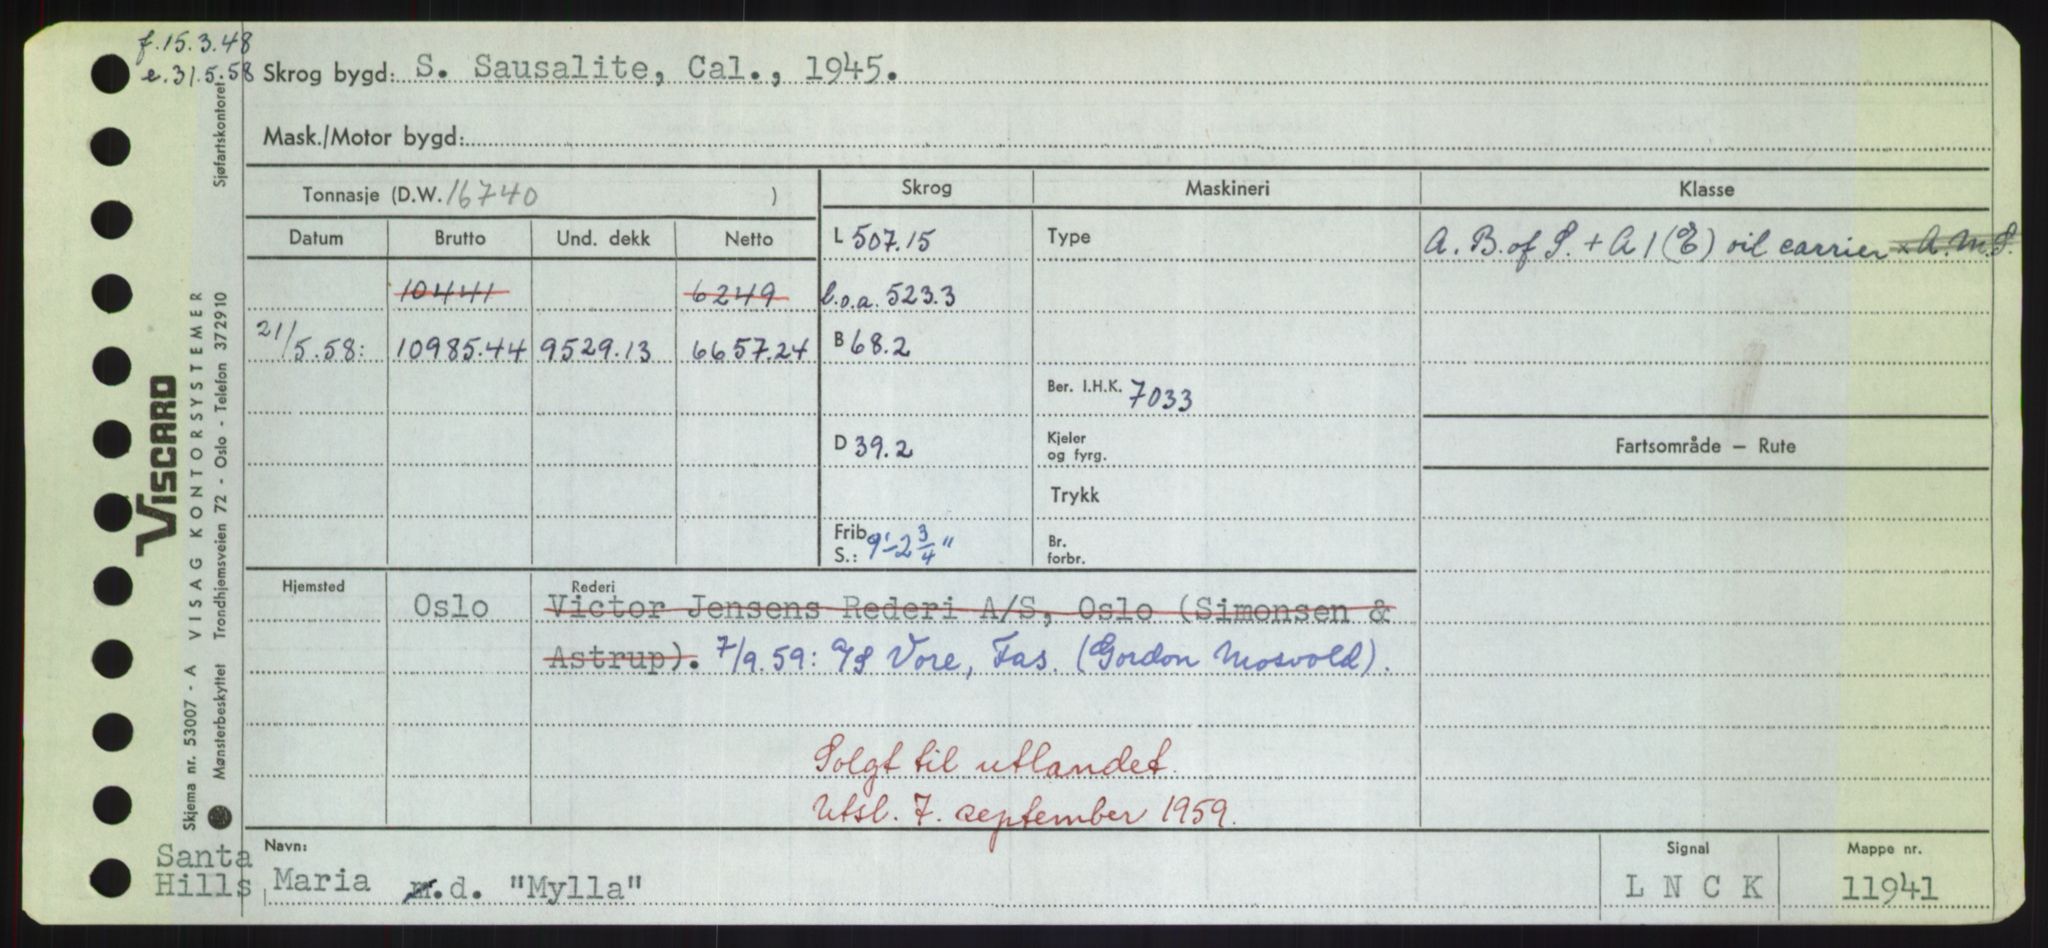 f. 15.3.48
e. 31.5.58 Skrog bygd: S. Sausalite, Cal., 1945.
Mask./Motor bygd:
Tonnasje (D.W. 16740 )
Skrog Maskineri Klasse
Datum Brutto Und. dekk Netto
L 507.15 Type A. B. of S. + A 1 (E) oil carrier × A. M. S.
10441 6249 l.o.a. 523.3
21/5.58: 10985.44 9529.13 6657.24 B 68.2
Ber. I.H.K. 7033
D 39.2 Kjeler
og fyrg. Fartsområde — Rute
Trykk
Frib
S.: 9'-2 3/4" Br.
forbr.
Hjemsted Rederi
Oslo Victor Jensens Rederi A/S, Oslo (Simonsen &
Astrup). 7/9.59: I/S Vore, Fas. (Gordon Mosvold).
Solgt til utlandet.
Utsl. 7. september 1959.
Navn: Signal Mappe nr.
Santa
Hills Maria m.d. "Mylla" L N C K 11941
Skjema nr. 53007 - A VISAG KONTORSYSTEMER
Mønsterbeskyttet Trondhjemsveien 72 - Oslo - Telefon 372910 Sjøfartskontoret
VISCARD